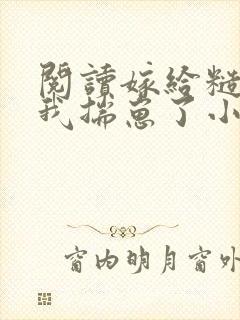 閱讀嫁給糙
我揣崽了小
窗内明月窗外